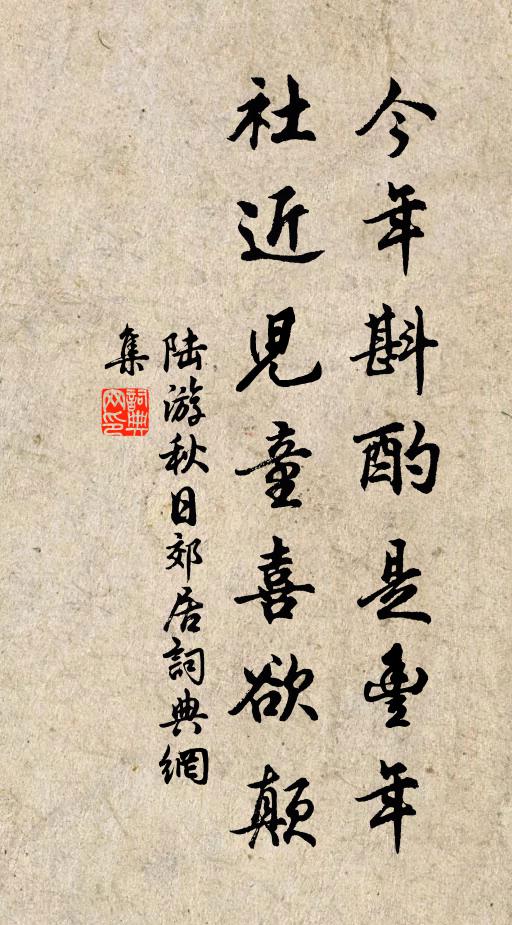 今年斟酌是豐年
社近兒童喜欲顛
陸游秋日郊居詞典網
集
詞典網印